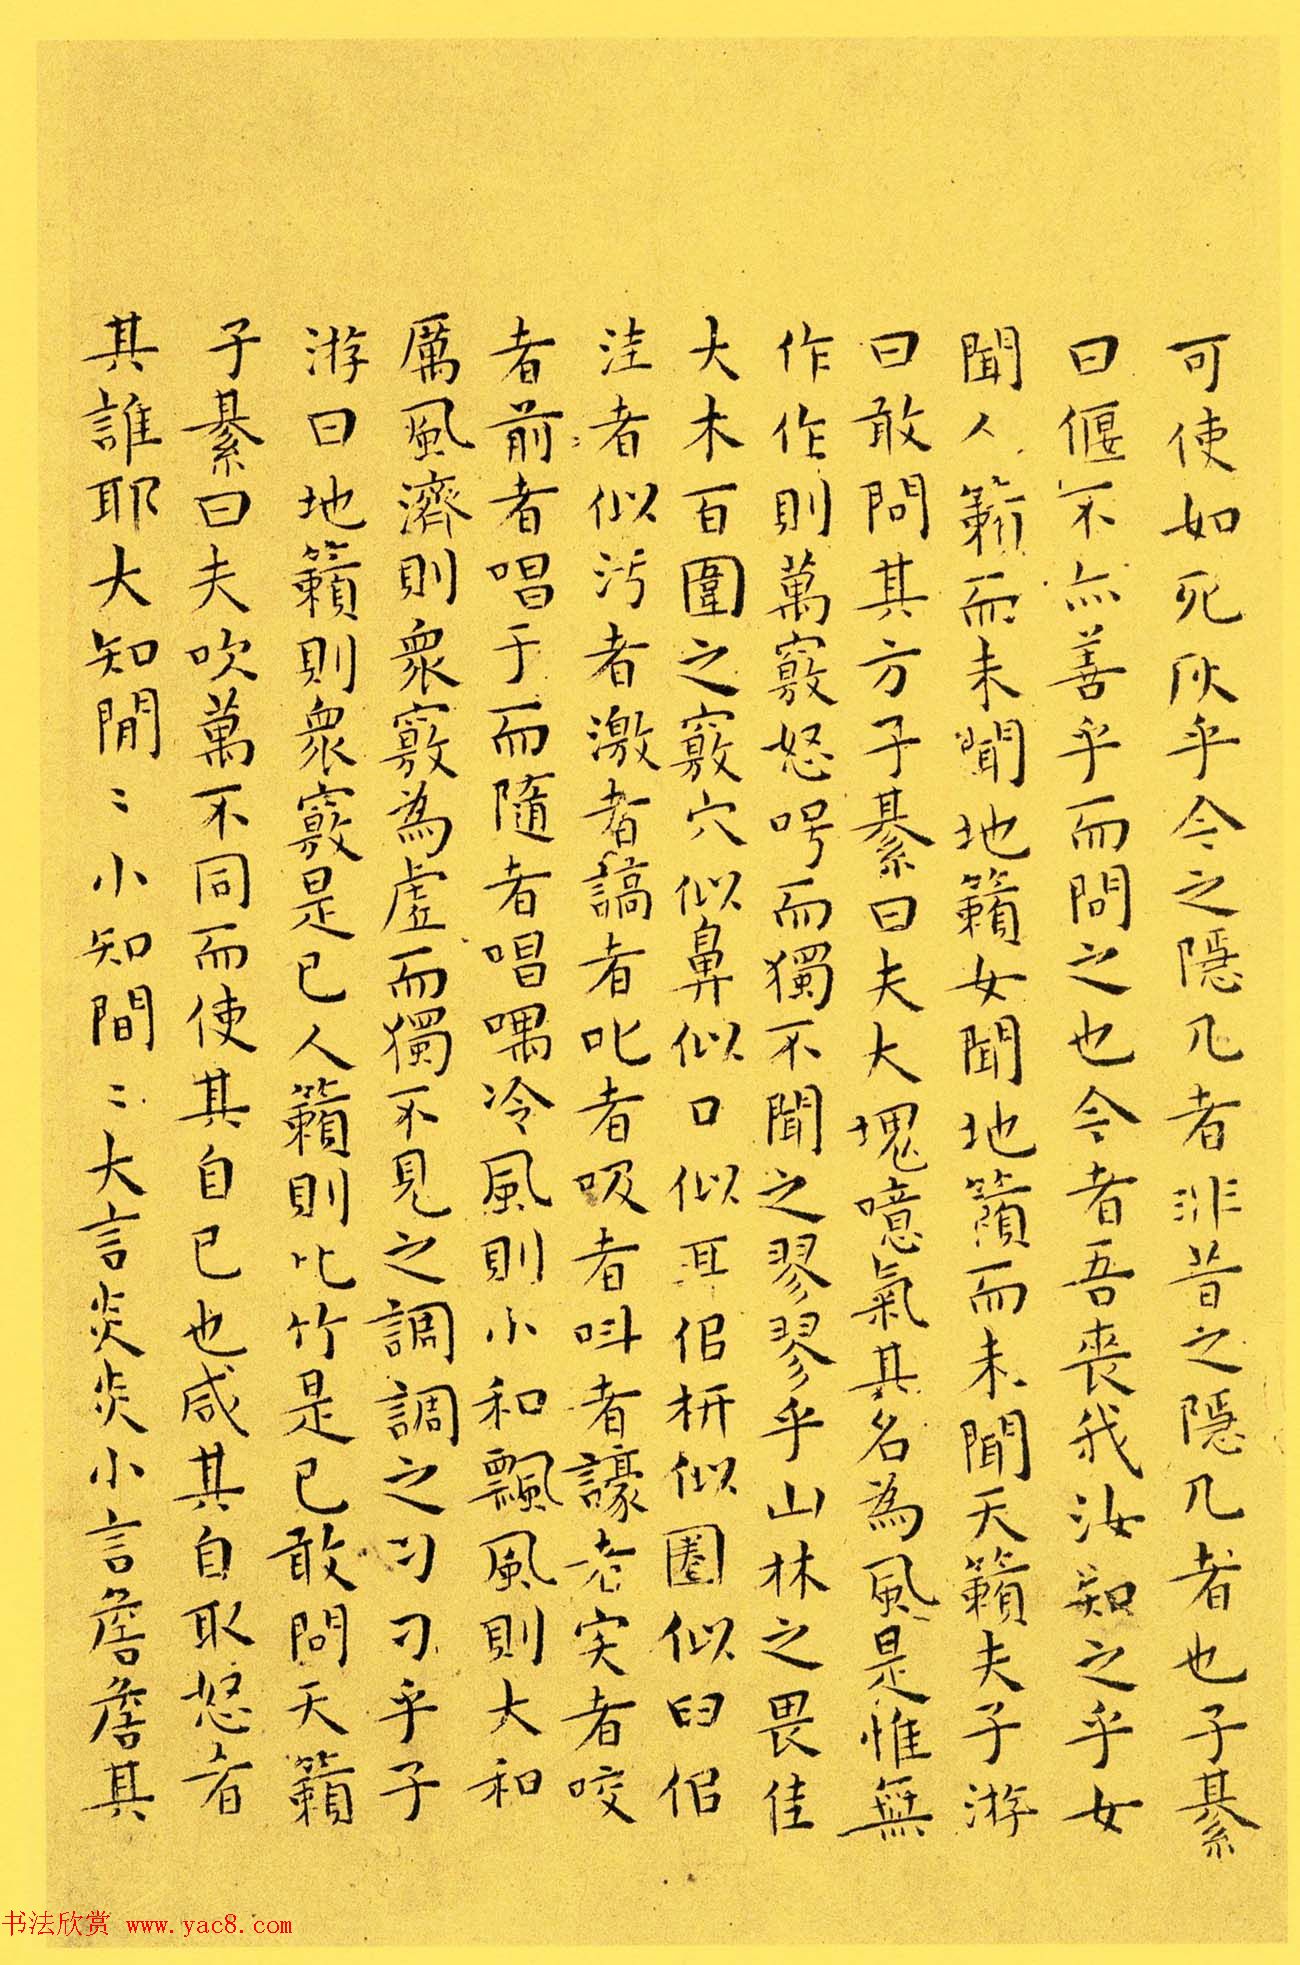 可使如死灰乎今之隱几者非昔之隱几者也子綦
曰偃不亦善乎而問之也今者吾喪我汝知之乎女
聞人籟而未聞地籟女聞地籟而未聞天籟夫子游
曰敢問其方子綦曰夫大塊噫氣其名為風是惟無
作作則萬竅怒呺而獨不聞之翏翏乎山林之畏佳
大木百圍之竅穴似鼻似口似耳佀枅似圈似臼佀
洼者似污者激者謞者叱者吸者叫者譹者宎者咬
者前者唱于而隨者唱喁冷風則小和飄風則大和
厲風濟則衆竅為虛而獨不見之調調之刁刁乎子
游曰地籟則衆竅是已人籟則比竹是已敢問天籟
子綦曰夫吹萬不同而使其自已也咸其自取怒者
其誰耶大知閒〻小知間〻大言炎炎小言詹詹其
书法欣赏 www.yac8.com